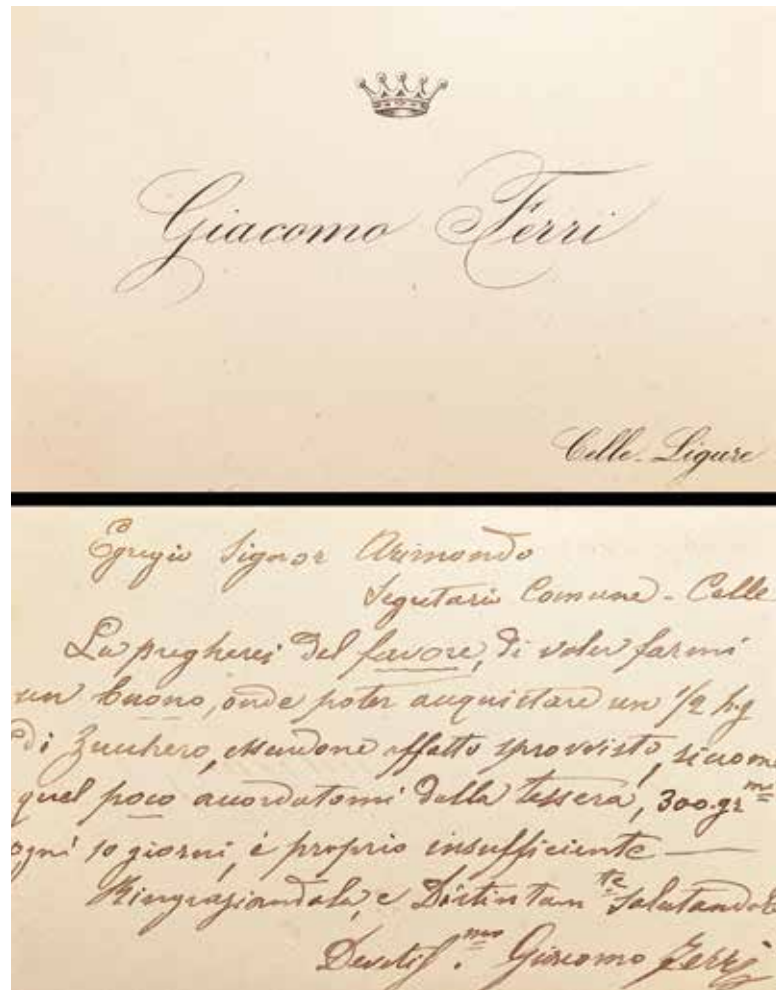 Giacomo Ferri
Celle-Ligure
Egregio Signor Arimondo
Segretario Comune - Celle
La pregherei del favore, di voler farmi
un buono, onde poter acquistare un 1/2 kg
di Zucchero, essendone affatto sprovvisto, siccome
quel poco accordatomi dalla tessera, 300 grmi
ogni 10 giorni, è proprio insufficiente —
Ringraziandola, e Distintamte salutandola
Devotissmo Giacomo Ferri